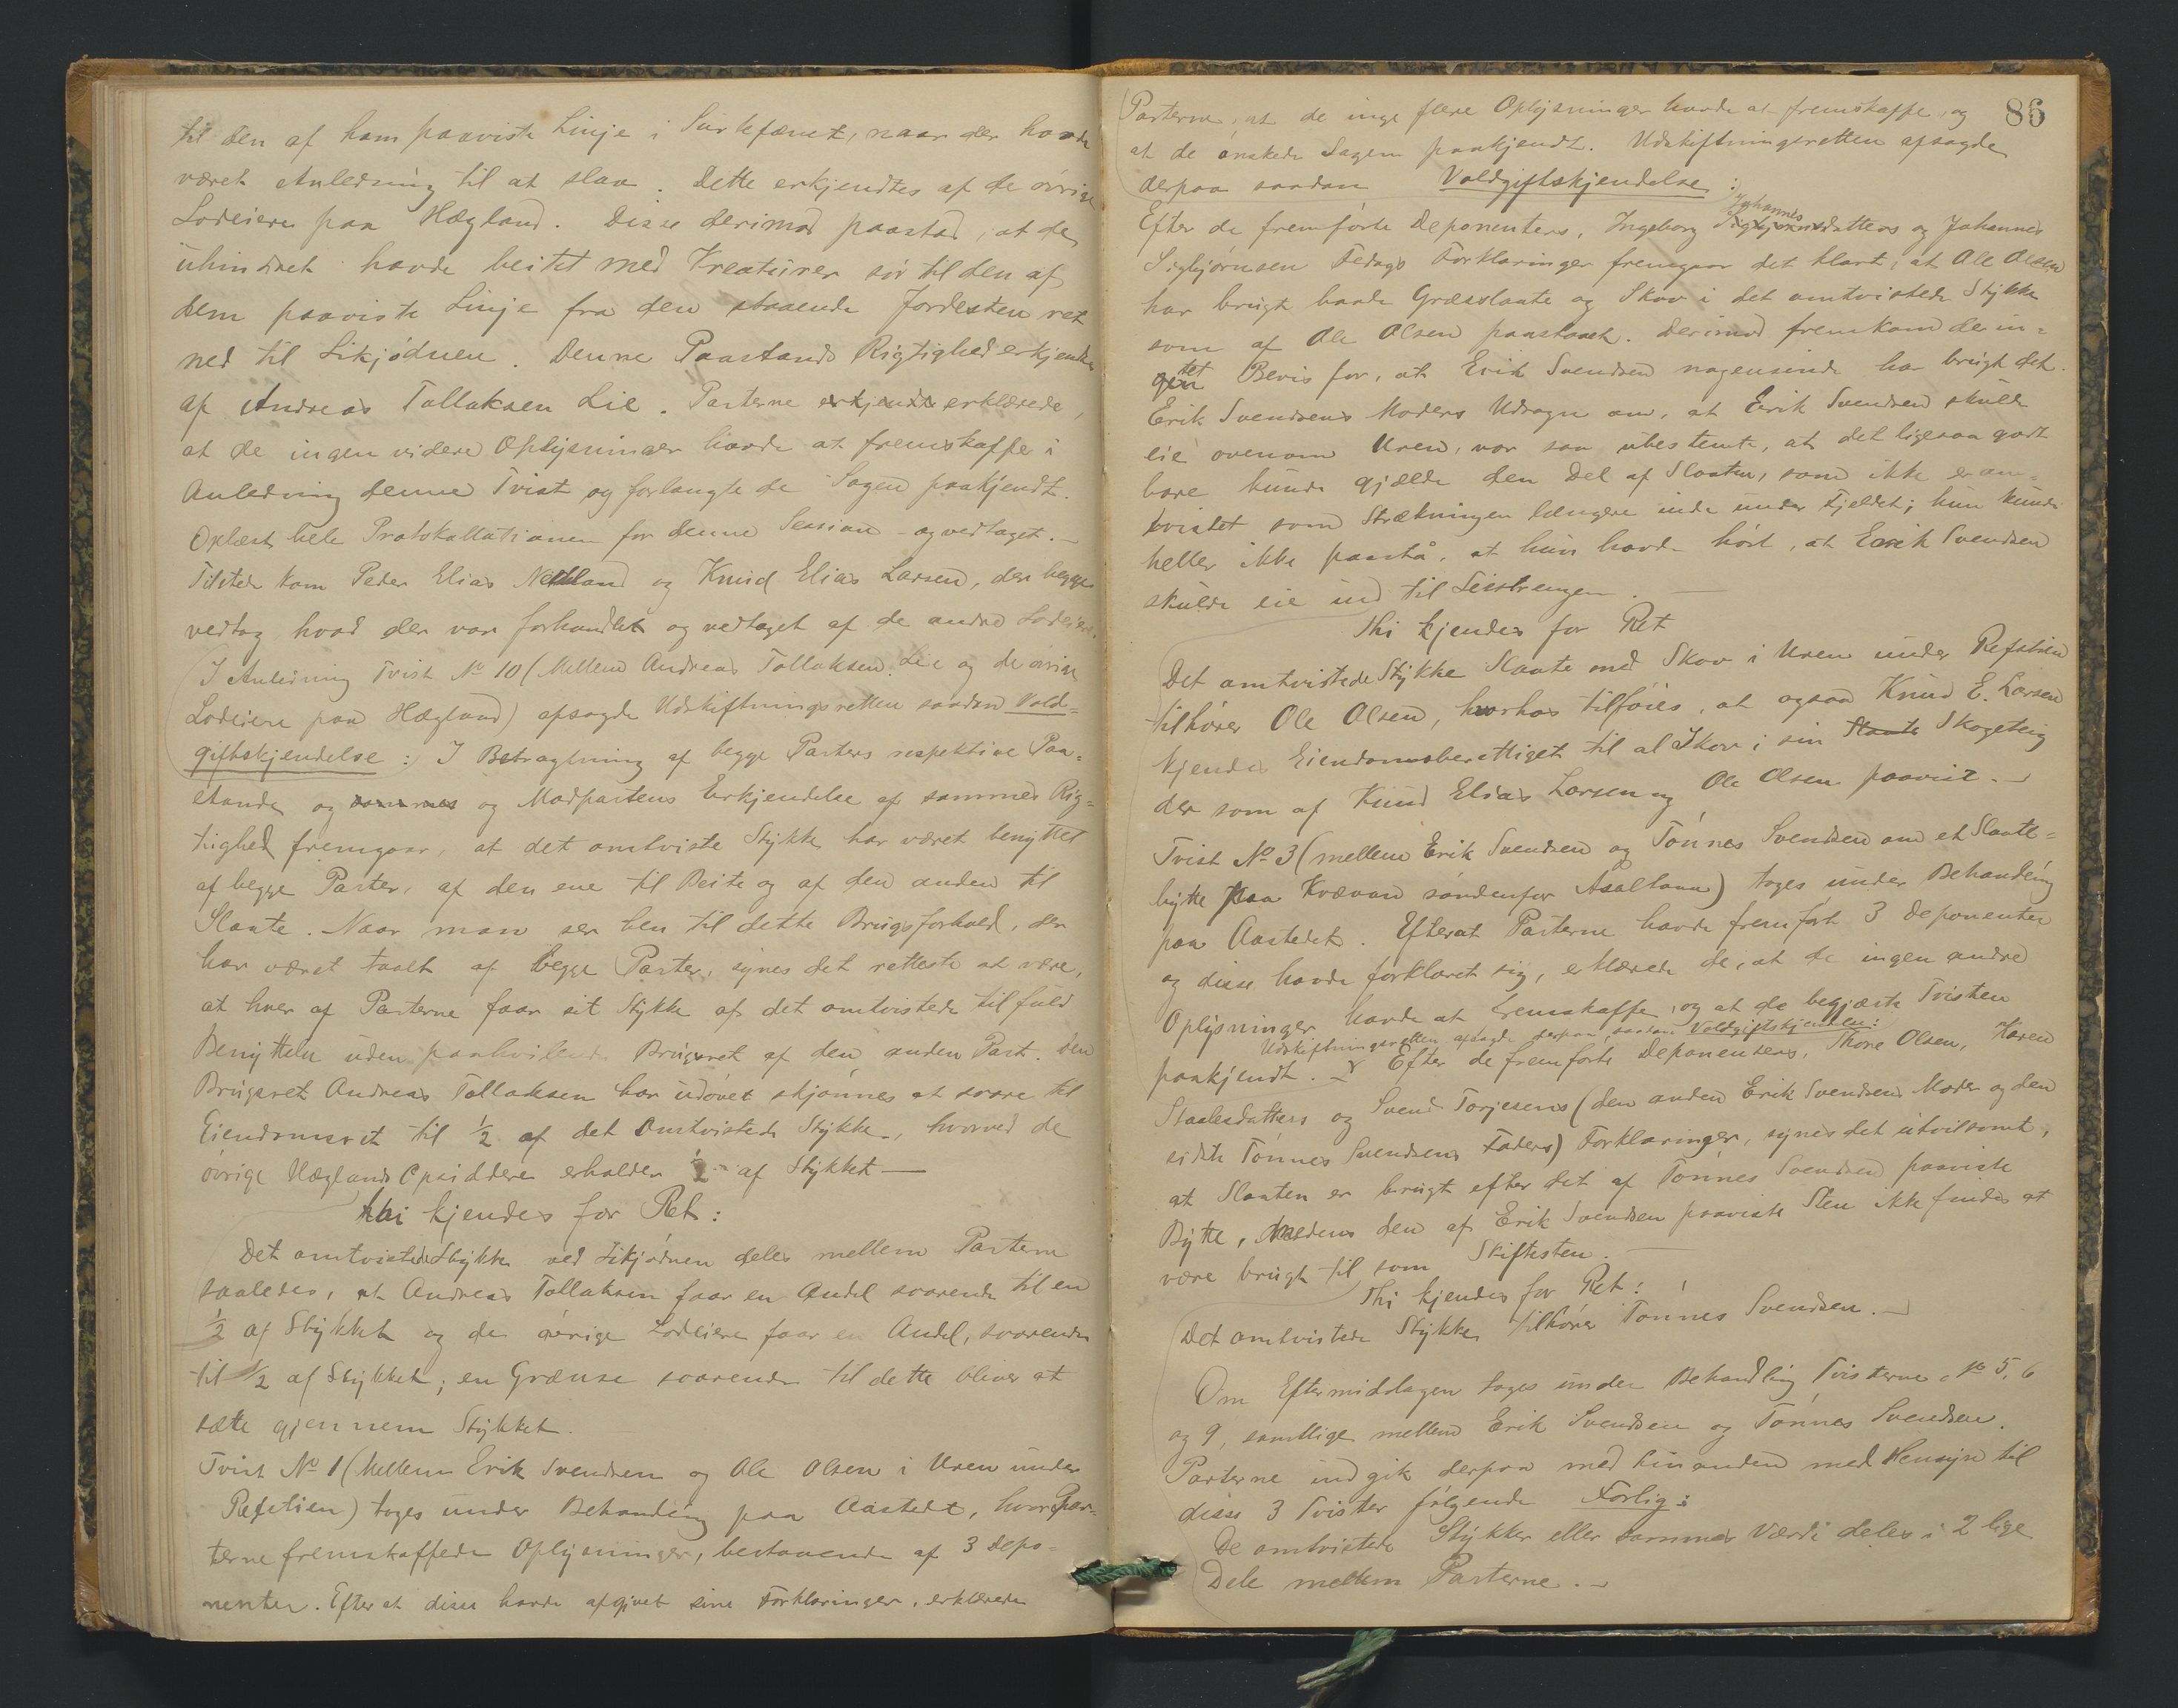 til den af ham paaviste Linje i Surtefæmet, naar der havde
været Anledning til at slaa. Dette erkjendtes af de øvrige
Lodeiere paa Hægland. Disse derimod paastod, at de
uhindret havde beitet med Kreaturer sør til den af
dem paaviste Linje fra den staaende Jordesten ret
ned til Likjødnen. Denne Paastands Rigtighed erkjendtes
af Andreas Tallaksen Lie. Parterne erkjendte erklærede,
at de ingen videre Oplysninger havde at fremskaffe i
Anledning denne Tvist og forlangte de Sagen paakjendt.
Oplæst hele Protokollationen for denne Session og vedtaget.
Tilstede kom Peder Elias Netland og Knud Elias Larsen, der begge
vedtog hvad der var forhandlet og vedtaget af de andre Lodeiere.
I Anledning Tvist No 10 (Mellem Andreas Tallaksen Lie og de øvrige
Lodeiere paa Hægland) afsagde Udskiftningsretten saadan Vold-
giftskjendelse: I Betragtning af begge Parters respektive Paa-
stande og sammes og Modpartens Erkjendelse af sammes Rig-
tighed fremgaar, at det omtviste Stykke har været benyttet
af begge Parter, af den ene til Beite og af den anden til
Slaatte. Naar man ser hen til dette Brugsforhold, der
har været taalt af begge Parter, synes det retteste at være,
at hver af Parterne faar sit Stykke af det omtvistede til fuld
Benyttelse uden paahvilende Brugsret af den anden Part. Den
Brugsret Andreas Tallaksen har udøvet skjønnes at svare til
Eiendomsret til 1/2 af det Omtvistede Stykke, hvorved de
øvrige Hæglands Opsiddere erholder 1/2 af Stykket —
thi kjendes for Ret:
Det omtvistede Stykke ved Likjødnen deles mellem Parterne
saaledes, at Andreas Tallaksen faar en Andel svarende til en
1/2 af Stykket og de øvrige Lodeiere faar en Andel, svarende
til 1/2 af Stykket; en Grænse svarende til dette bliver at
sætte gjennem Stykket.
Tvist No 1 (Mellem Erik Svendsen og Ole Olsen i Uren under
Refstien) toges under Behandling paa Aastedet, hvor Par-
terne fremskaffede Oplysninger, bestaaende af 3 Depo-
nenter. Efter at disse havde afgivet sine Forklaringer, erklærede
86
Parterne, at de inge flere Oplysninger havde at fremskaffe, og
at de ønskede Sagen paakjendt. Udskiftningsretten afsagde
derpaa saadan Voldgiftskjendelse:
Johannes
Efter de fremførte Deponenters, Ingeborg Sigbjørnsdatters og Johannes
Sigbjørnsen Fedags Forklaringer fremgaar det klart, at Ole Olsen
har brugt baade Græsslaatte og Skov i det omtvistede Stykke
som af Ole Olsen paastaaet. Derimod fremkom der in-
gen tet Bevis for, at Erik Svendsen nogensinde har brugt det.
Erik Svendsens Moders Udsagn om, at Erik Svendsen skulde
eie ovenom Uren, var saa ubestemte, at det ligesaa godt
bare kunde gjælde den Del af Slaatten, som ikke er om-
tvistet som Strækningen længere inde under Fjeldet; hun kunde
heller ikke paastå, at hun havde hørt, at Erik Svendsen
skulde eie ind til
Thi kjendes for Ret
Det omtvistede Stykke Slaatte med Skov i Uren under Refstien
tilhører Ole Olsen, hvorhos tilføies, at ogsaa Knud E. Larsen
kjendes Eiendomsberettiget til al Skov i sin Slaatte Skogeteig
der som af Knud Elias Larsen og Ole Olsen paavist.
Tvist No 3 (mellem Erik Svendsen og Tønnes Svendsen om et Slaatte-
bytte paa Kvævan søndenfor Asaltona) toges under Behandling
paa Aastedet. Efterat Parterne havde fremført 3 Deponenter
og disse havde forklaret sig, erklærede de, at de ingen andre
Oplysninger havde at fremskaffe, og at de begjærte Tvisten
Udskiftningsretten afsagde derpaa saadan Voldgiftskjendelse:
paakjendt. Efter de fremførte Deponenters, Thore Olsen, Karen
Staalesdatters og Svend Torjesens (den anden Erik Svendsens Moder og den
sidste Tønnes Svendsens Faders) Forklaringer, synes det utvilsomt,
at Slaatten er brugt efter det af Tønnes Svendsen paaviste
Bytte, medens den af Erik Svendsen paaviste Sten ikke findes at
være brugt til som Skiftesten.
Thi kjendes for Ret:
Det omtvistede Stykke tilhører Tønnes Svendsen.
Om Eftermiddagen toges under Behandling Tvisterne No 5, 6
og 9, samtlige mellem Erik Svendsen og Tønnes Svendsen.
Parterne indgik derpaa med hinanden med Hensyn til
disse 3 Tvister følgende Forlig:
De omtvistede Stykker eller sammes Værdi deles i 2 lige
Dele mellem Parterne.